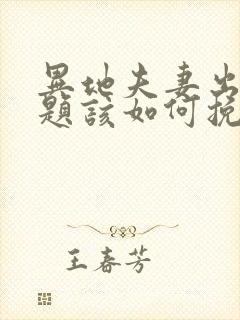 異地夫妻出
題該如何挽
王春芳